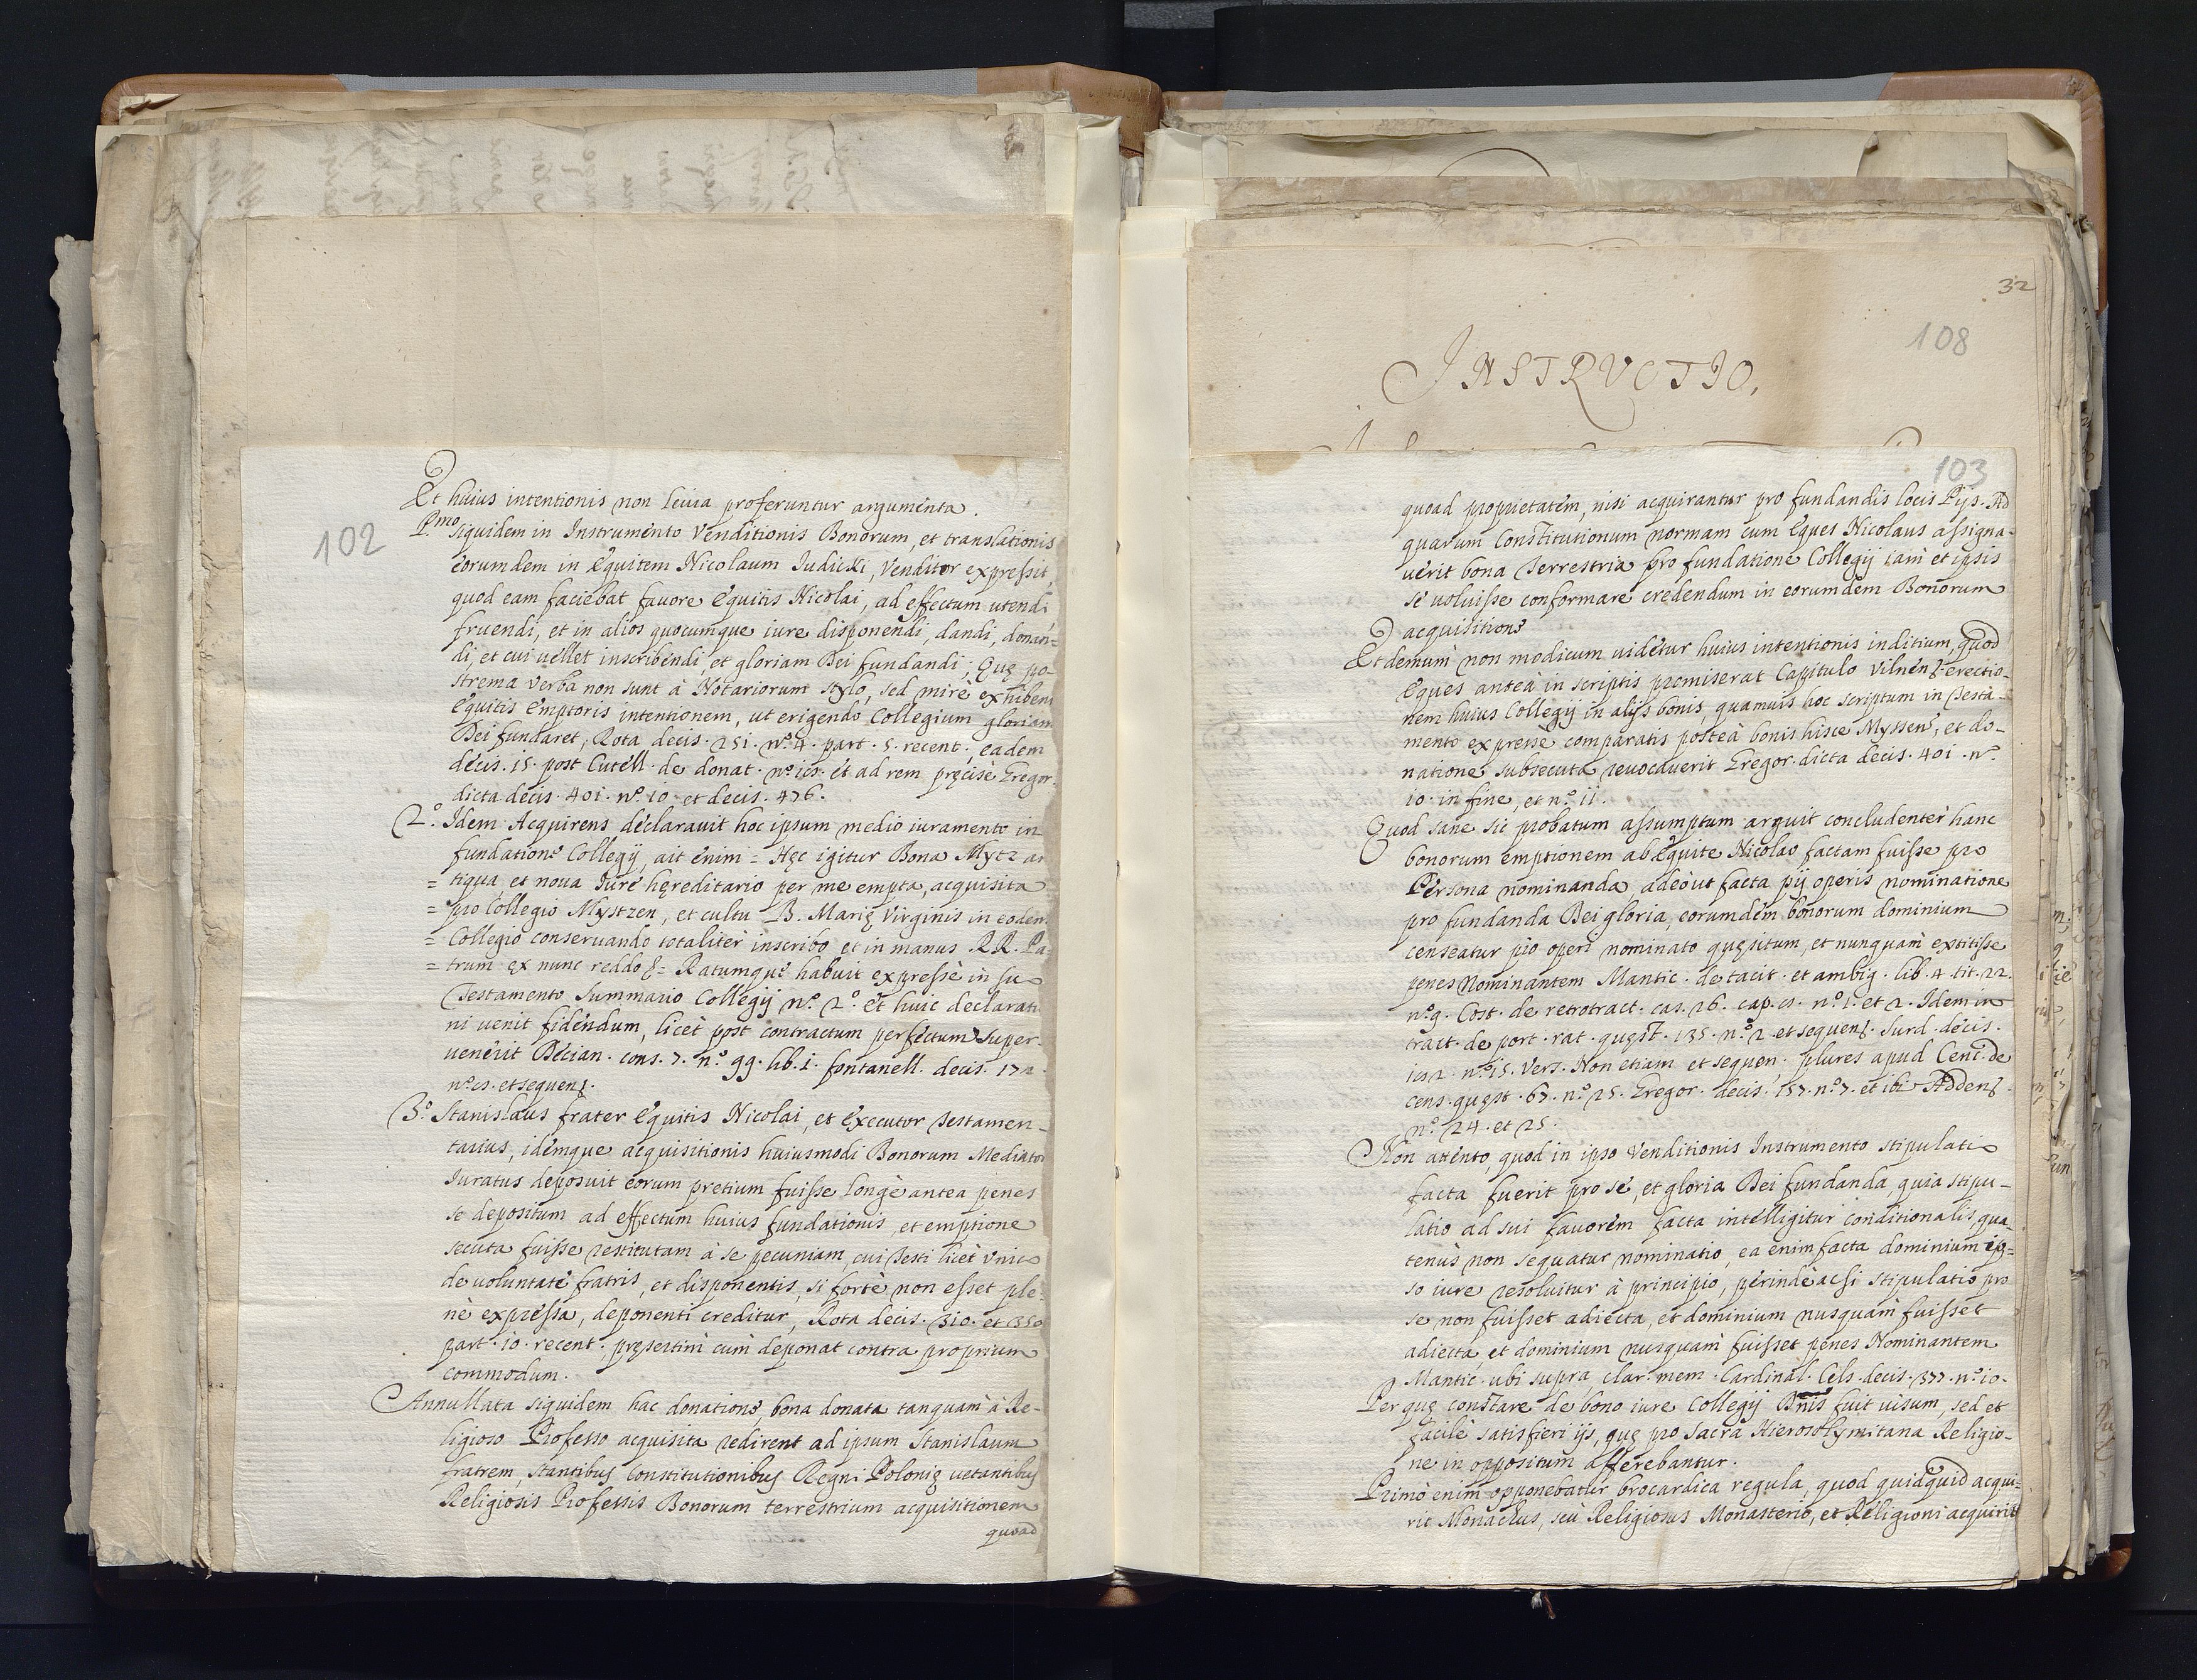 102
Et huius intentionis non leuia proferuntur argumenta.
P.mo siquidem in Instrumento Venditionis Bonorum, et translationis
eorumdem in Equitem Nicolaum Iudicki, Venditor expressit,
quod eam faciebat fauore Equitis Nicolai, ad effectum utendi
fruendi, et in alios quocumque iure disponendi, dandi, donan-
di, et cui vellet inscribendi et gloriam Dei fundandi; Quę po-
strema verba non sunt à Notariorum stylo, sed mirè exhibent
Equitis Emptoris intentionem, ut erigendo Collegium gloriam
Dei fundaret, Rota decis. 251. n.º 4. part. 5. recent; eadem
decis. 15. post Cutell. de donat. et ad rem pręcisè Gregor.
dicta decis. 401. n.º 10. et decis. 476.
2.º Idem Acquirens declarauit hoc ipsum medio iuramento in
fundatione Collegij, ait enim = Hęc igitur Bona Mytz an
= tiqua, et noua Iure hęreditario per me empta, acquisita
= pro Collegio Mystzen, et cultu B. Marię Virginis in eodem
= Collegio conseruando totaliter inscribo, et in manus RR. Pa-
= trum ex nunc reddo &= Ratumque habuit expressè in suo
Testamento Summario Collegij n.º 2.º et huic declaratio
ni uenit fidendum, licet post contractum perfectum super-
uenerit Decian. cons. 7. n.º 99. lib. 1. fontanell. decis. 172.
et sequen.
3.º Stanislaus frater Equitis Nicolai, et Executor Testamen-
tarius, idemque acquisitionis huiusmodi Bonorum Mediator
Iuratus deposuit eorum pretium fuisse longè antea penes
se depositum ad effectum huius fundationis, et emptione
secuta fuisse restitutam à se pecuniam, cui Testi licet unico
de uoluntate fratris, et disponentis, si fortè non esset ple-
nè expressa, deponenti creditur, Rota decis. 310. et 350
part. 10. recent. pręsertim cùm deponat contra proprium
commodum.
Annullata siquidem hac donatione, bona donata tanquam à Re-
ligioso Professo acquisita redirent ad ipsum Stanislaum
fratrem, stantibus Constitutionibus Regni Polonię uetantibus
Religiosis Professis Bonorum terrestrium acquisitionem
quoad
32
108
INSTRVCTIO,
103
quoad proprietatem, nisi acquirantur pro fundandis locis Pijs. Ad
quarum Constitutionum normam cum Eques Nicolaus assigna-
uerit bona Terrestria pro fundatione Collegij iam et ipsis
se uoluisse conformare credendum in eorumdem Bonorum
acquisitione
Et demum non modicum uidetur huius intentionis inditium, quod
Eques anteà in scriptis promiserat Capitulo Vilnen. erectio-
nem huius Collegij in alijs bonis, quamuis hoc scriptum in Testa-
mento expresse comparatis posteà bonis hisce Myssen, et do-
natione subsecuta reuocauerit Gregor. dicta decis. 401. n.º
10. in fine, et n.º 11.
Quod sane sic probatum assumptum arguit concludenter hanc
bonorum emptionem ab Equite Nicolao factam fuisse pro
Persona nominanda, adeòut facta pij operis nominatione
pro fundanda Dei gloria, eorumdem bonorum dominium
censeatur pio operi nominato quęsitum, et nunquam extitisse
penes Nominantem Mantic. de tacit. et ambig. lib. 4. tit. 22.
n.º 9. Cost. de retrotract. cas. 26. n.º 1. et 2. Idem in
tract. de port. rat. quęst. 135. n.º 2. et sequen. Surd. decis.
n.º 15. Vers. Non etiam et sequen. plures apud Cenc. de
cens. quęst. 67. n.º 25. Gregor. decis. 157. n.º 7. et ibi Adden.
n.º 24. et 25.
Non attento, quod in ipso Venditionis Instrumento stipulatio
facta fuerit pro se, et gloria Dei fundanda, quia stipu-
latio ad sui fauorem facta intelligitur conditionalis, qua-
tenùs non sequatur nominatio, ea enim facta dominium ip=
so iure resoluitur à principio, perindè ac si stipulatio pro
se non fuisset adiecta, et dominium nusquàm fuisset
adiecta, et dominium nusquàm fuisset penes Nominantem
Mantic. ubi supra, clar. mem. Cardinal. Cels. decis. 377. n.º 10.
Per quę constare de bono iure Collegij Dnis fuit uisum, sed et
facilè satisfieri ijs, quę pro Sacra Hierosolymitana Religio-
ne in oppositum afferebantur.
Primò enim opponebatur brocardica regula, quod quidquid acqui=
rit Monachus, seù Religiosus Monasterio, et Religioni acquirit